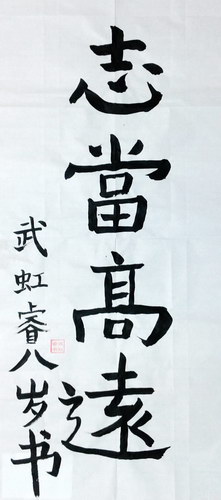 志當高遠
武虹睿八岁书